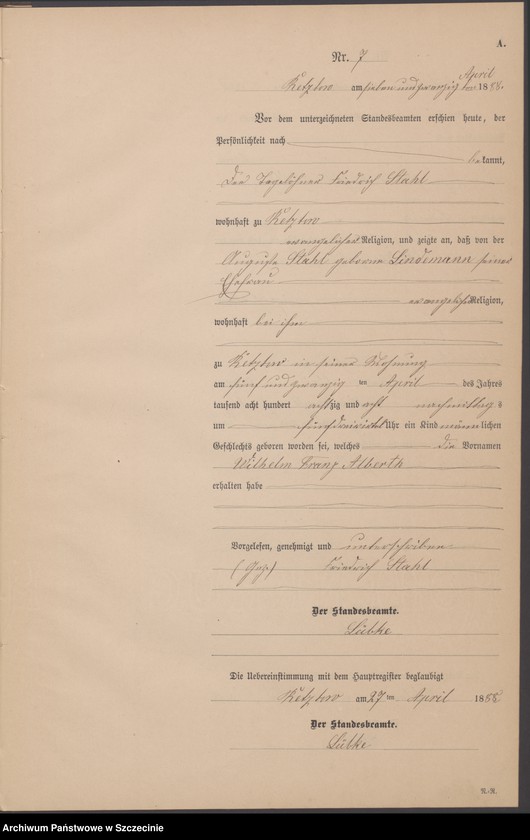 A.
Nr. 7
April
Retzow am sieben und zwanzig ten 1888.
Vor dem unterzeichneten Standesbeamten erschien heute, der
Persönlichkeit nach
bekannt,
Der Tagelöhner Friedrich Stahl
wohnhaft zu Retzow
evangelischer Religion, und zeigte an, daß von der
Auguste Stahl geborne Lindemann seiner
Ehefrau
evangelischer Religion,
wohnhaft bei ihm
zu Retzow in seiner Wohnung
am fünf und zwanzig ten April des Jahres
tausend acht hundert achtzig und acht nachmittags
um fünf dreiviertel Uhr ein Kind männlichen
Geschlechts geboren worden sei, welches die Vornamen
Wilhelm Franz Alberth
erhalten habe
Vorgelesen, genehmigt und unterschrieben
(Gez) Friedrich Stahl
Der Standesbeamte.
Lübke
Die Uebereinstimmung mit dem Hauptregister beglaubigt
Retzow am 27 ten April 1888
Der Standesbeamte.
Lübke.
R.-R.
Archiwum Państwowe w Szczecinie